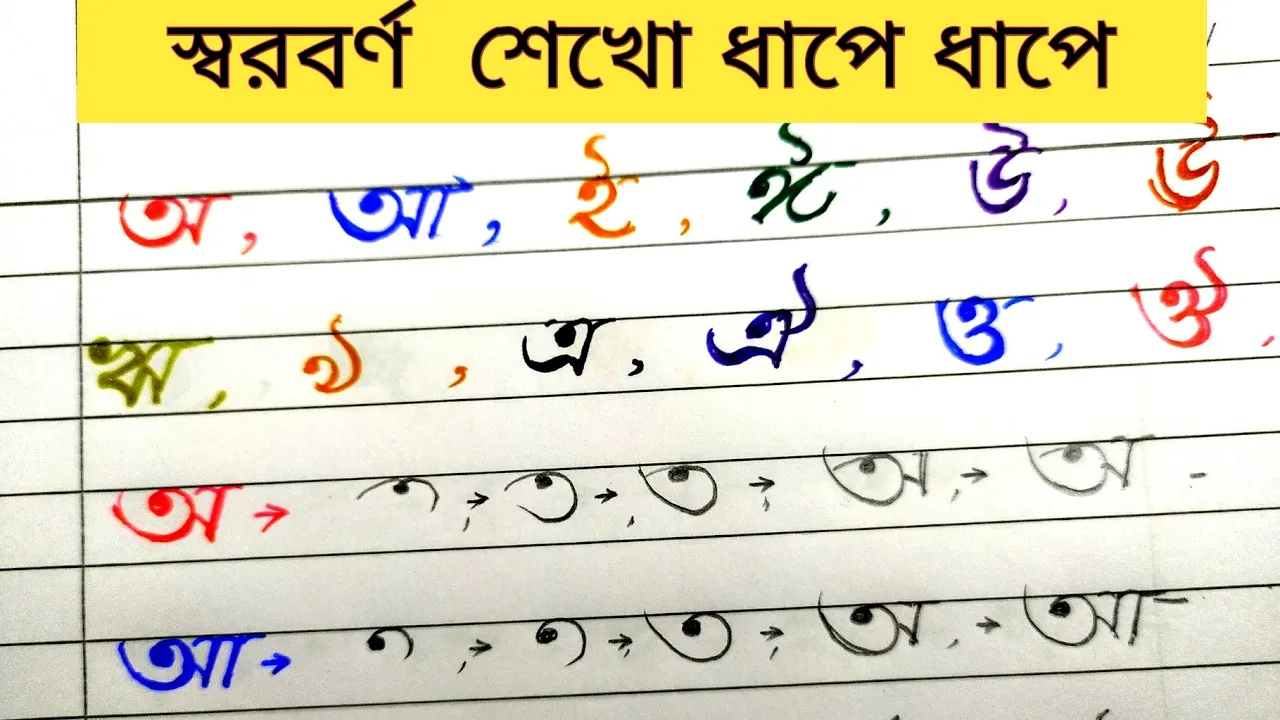 স্বরবর্ণ শেখো ধাপে ধাপে
অ, আ, ই, ঈ, উ, ঊ
ঋ, ঌ, এ, ঐ, ও, ঔ,
অ → → → ত → অ → অ -
আ → → → ত → অ → আ